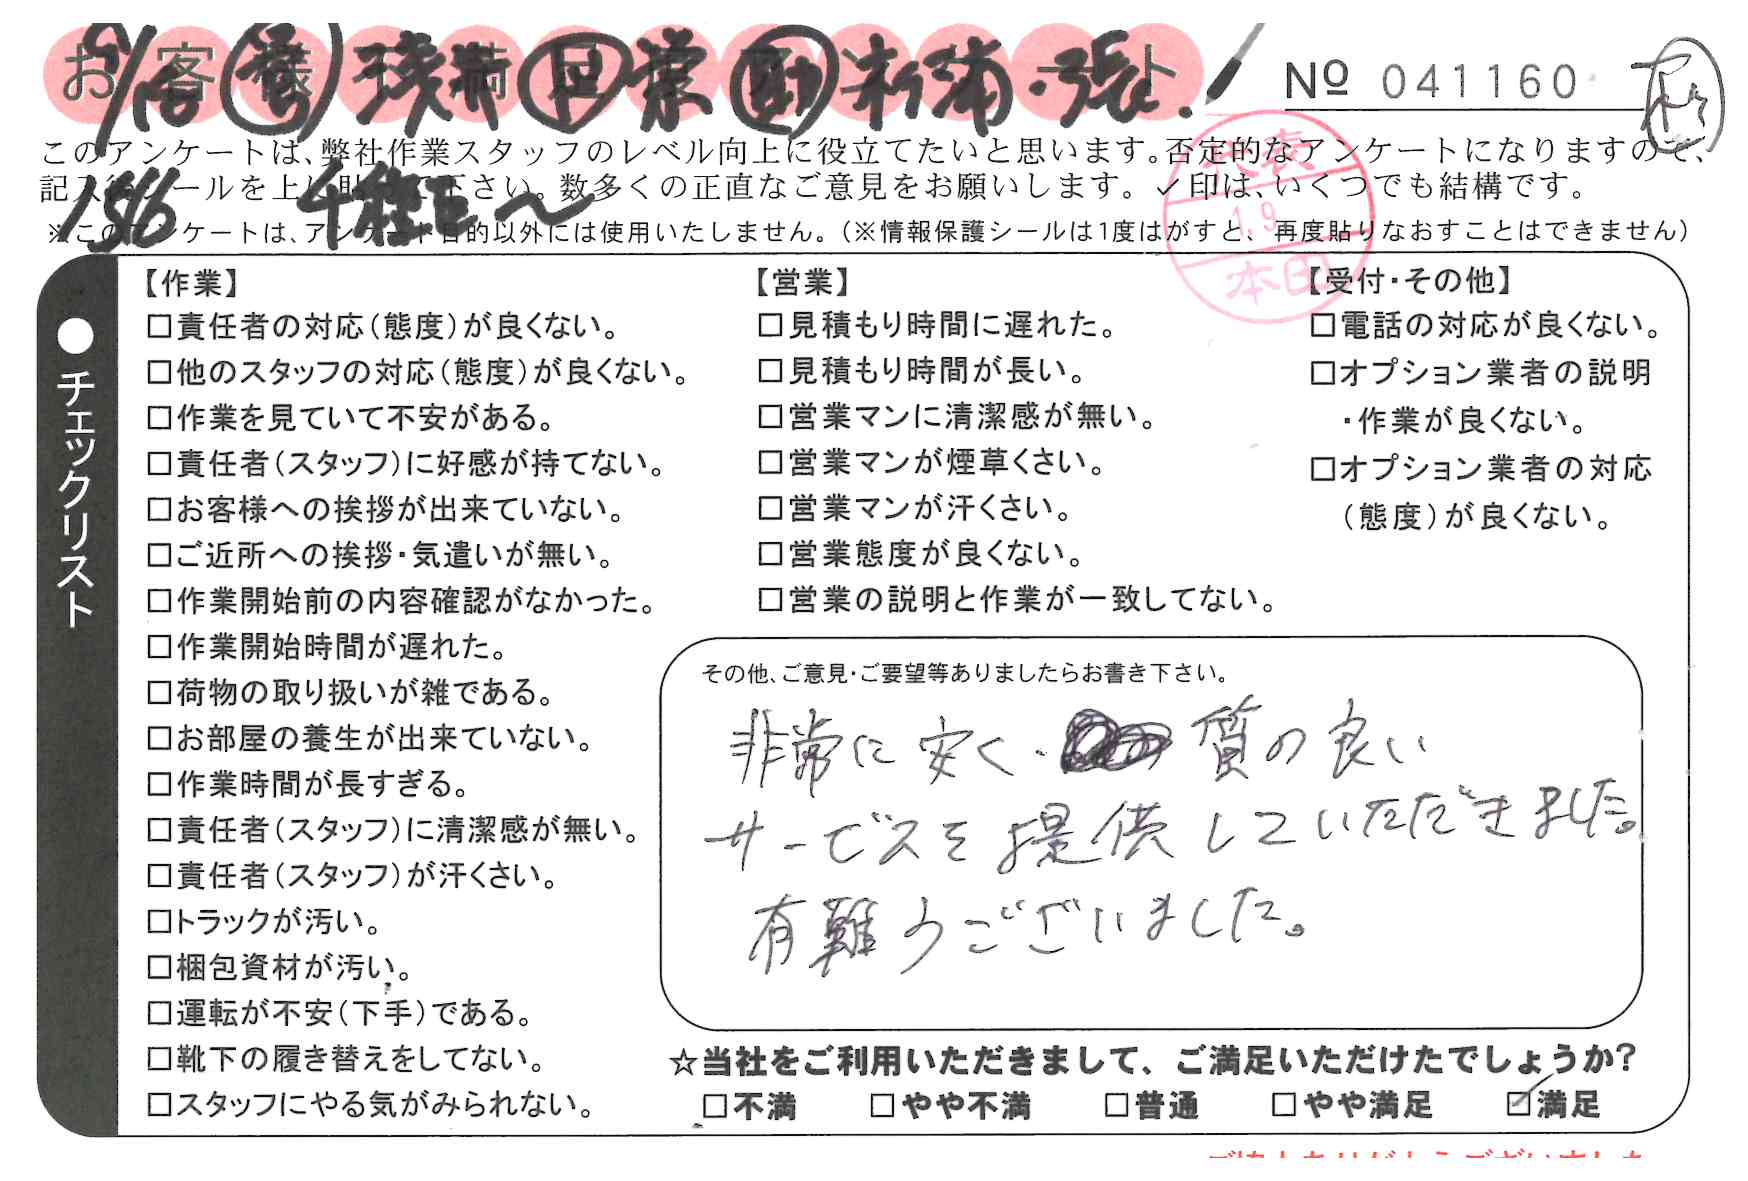 お客様不満足度アンケート
№ 041160
このアンケートは、弊社作業スタッフのレベル向上に役立てたいと思います。否定的なアンケートになりますので、
記入後シールを上に貼って下さい。数多くの正直なご意見をお願いします。✓印は、いくつでも結構です。
※このアンケートは、アンケート目的以外には使用いたしません。(※情報保護シールは1度はがすと、再度貼りなおすことはできません)
代表
1.9
本田
●チェックリスト
【作業】
□責任者の対応(態度)が良くない。
□他のスタッフの対応(態度)が良くない。
□作業を見ていて不安がある。
□責任者(スタッフ)に好感が持てない。
□お客様への挨拶が出来ていない。
□ご近所への挨拶・気遣いが無い。
□作業開始前の内容確認がなかった。
□作業開始時間が遅れた。
□荷物の取り扱いが雑である。
□お部屋の養生が出来ていない。
□作業時間が長すぎる。
□責任者(スタッフ)に清潔感が無い。
□責任者(スタッフ)が汗くさい。
□トラックが汚い。
□梱包資材が汚い。
□運転が不安(下手)である。
□靴下の履き替えをしてない。
□スタッフにやる気がみられない。
【営業】
□見積もり時間に遅れた。
□見積もり時間が長い。
□営業マンに清潔感が無い。
□営業マンが煙草くさい。
□営業マンが汗くさい。
□営業態度が良くない。
□営業の説明と作業が一致してない。
【受付・その他】
□電話の対応が良くない。
□オプション業者の説明
・作業が良くない。
□オプション業者の対応
(態度)が良くない。
その他、ご意見・ご要望等ありましたらお書き下さい。
非常に安く・質の良い
サービスを提供していただきました。
有難うございました。
☆当社をご利用いただきまして、ご満足いただけたでしょうか?
□不満 □やや不満 □普通 □やや満足 ☑満足
ご協力ありがとうございました